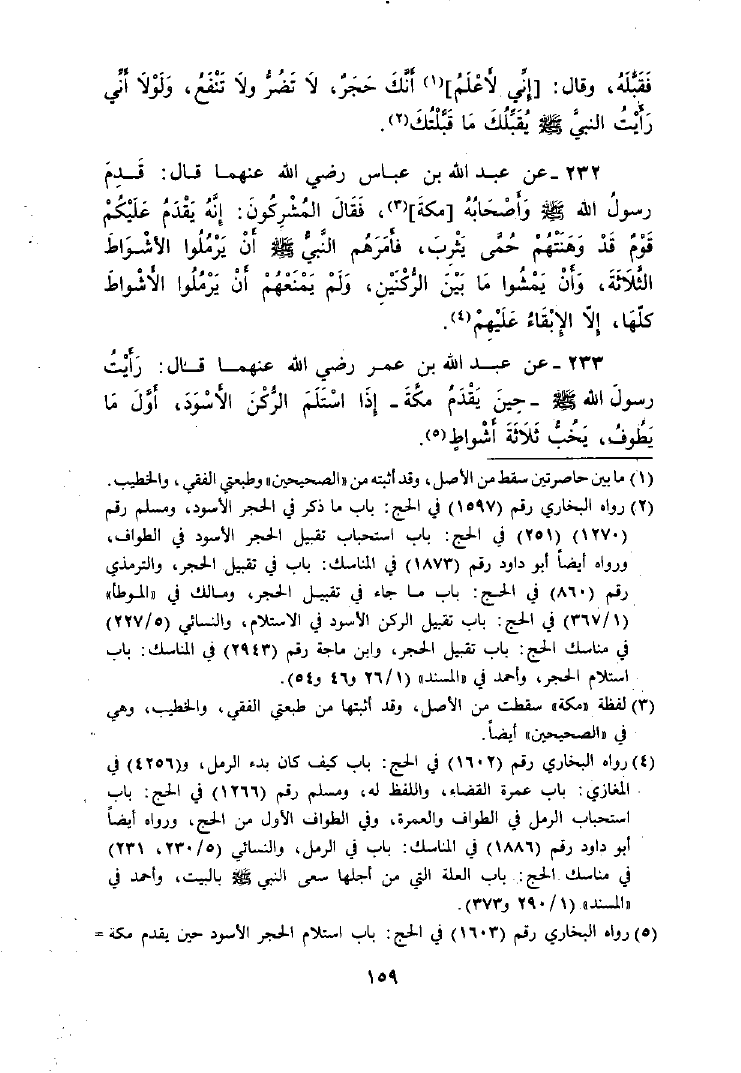 فَقَبَّلَهُ، وقال: [إِنِّي لأَعْلَمُ](١) أَنَّكَ حَجَرٌ، لَا تَضُرُّ ولا تَنْفَعُ، وَلَوْلَا أَنِّي
رَأَيْتُ النبيَّ ﷺ يُقَبِّلُكَ مَا قَبَّلْتُكَ(٢).
٢٣٢ - عن عبد الله بن عباس رضي الله عنهما قال: قَدِمَ
رسولُ الله ﷺ وَأَصْحَابُهُ [مكةَ](٣)، فَقَالَ المُشْرِكُونَ: إِنَّهُ يَقْدَمُ عَلَيْكُمْ
قَوْمٌ قَدْ وَهَنَتْهُمْ حُمَّى يَثْرِبَ، فَأَمَرَهُم النَّبيُّ ﷺ أَنْ يَرْمُلُوا الأَشْوَاطَ
الثَّلَاثَةَ، وَأَنْ يَمْشُوا مَا بَيْنَ الرُّكْنَيْنِ، وَلَمْ يَمْنَعْهُمْ أَنْ يَرْمُلُوا الأَشْواطَ
كلَّهَا، إِلَّا الإِبْقَاءُ عَلَيْهِمْ(٤).
٢٣٣ - عن عبد الله بن عمر رضي الله عنهما قال: رَأَيْتُ
رسولَ الله ﷺ - حِينَ يَقْدَمُ مكَّةَ - إِذَا اسْتَلَمَ الرُّكْنَ الأَسْوَدَ، أَوَّلَ مَا
يَطُوفُ، يَخُبُّ ثَلَاثَةَ أَشْوَاطٍ(٥).
(١) ما بين حاصرتين سقط من الأصل، وقد أثبته من «الصحيحين» وطبعتي الفقي، والخطيب.
(٢) رواه البخاري رقم (١٥٩٧) في الحج: باب ما ذكر في الحجر الأسود، ومسلم رقم
(١٢٧٠) (٢٥١) في الحج: باب استحباب تقبيل الحجر الأسود في الطواف،
ورواه أيضاً أبو داود رقم (١٨٧٣) في المناسك: باب في تقبيل الحجر، والترمذي
رقم (٨٦٠) في الحج: باب ما جاء في تقبيل الحجر، ومالك في «الموطأ»
(٣٦٧/١) في الحج: باب تقبيل الركن الأسود في الاستلام، والنسائي (٢٢٧/٥)
في مناسك الحج: باب تقبيل الحجر، وابن ماجة رقم (٢٩٤٣) في المناسك: باب
استلام الحجر، وأحمد في «المسند» (٢٦/١ و٤٦ و٥٤).
(٣) لفظة «مكة» سقطت من الأصل، وقد أثبتها من طبعتي الفقي، والخطيب، وهي
في «الصحيحين» أيضاً.
(٤) رواه البخاري رقم (١٦٠٢) في الحج: باب كيف كان بدء الرمل، و(٤٢٥٦) في
المغازي: باب عمرة القضاء، واللفظ له، ومسلم رقم (١٢٦٦) في الحج: باب
استحباب الرمل في الطواف والعمرة، وفي الطواف الأول من الحج، ورواه أيضاً
أبو داود رقم (١٨٨٦) في المناسك: باب في الرمل، والنسائي (٢٣٠/٥، ٢٣١)
في مناسك الحج: باب العلة التي من أجلها سعى النبي ﷺ بالبيت، وأحمد في
«المسند» (٢٩٠/١ و٣٧٣).
(٥) رواه البخاري رقم (١٦٠٣) في الحج: باب استلام الحجر الأسود حين يقدم مكة =
١٥٩